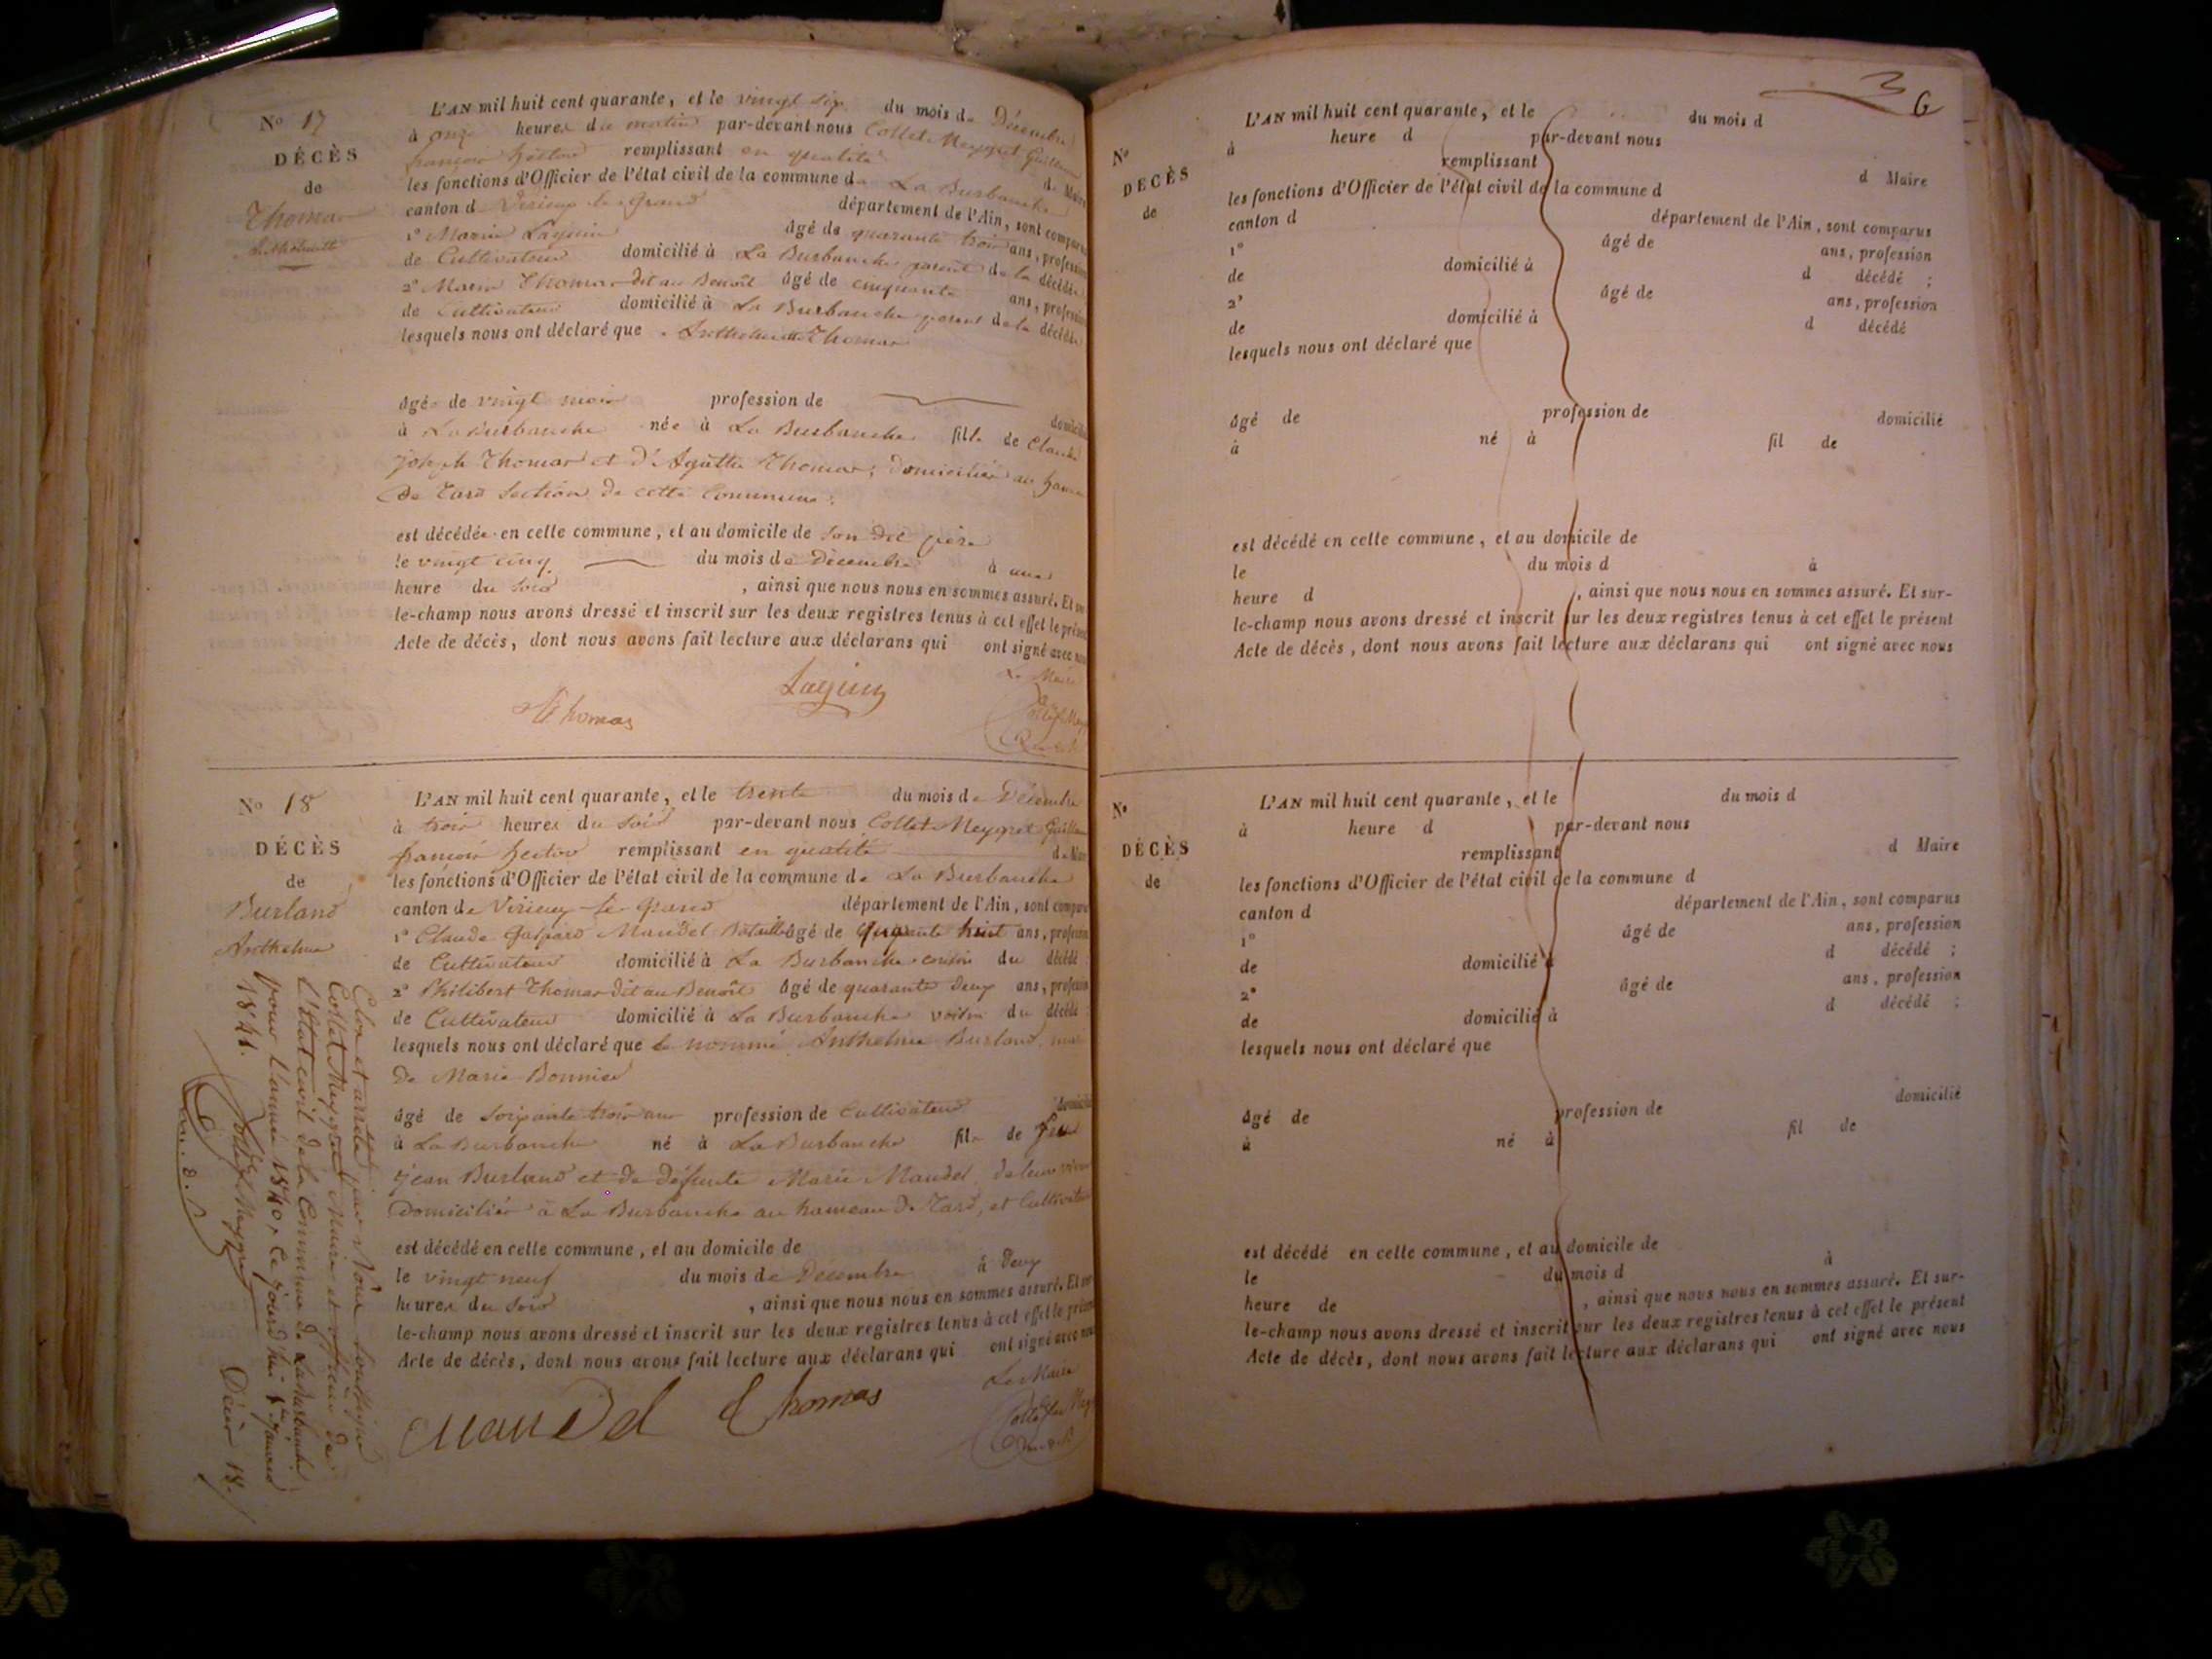 N° 17
DÉCÈS
de
Thomas
Anthelmette
L'AN mil huit cent quarante, et le vingt six du mois de Décembre
à onze heures du matin par-devant nous Collet-Meygret Guillaume
françois hector remplissant en qualité de Maire
les fonctions d'Officier de l'état civil de la commune de La Burbanche
canton d Virieux-le-grand département de l'Ain, sont comparus
1° Marin Laguin âgé de quarante trois ans, profession
de Cultivateur domicilié à La Burbanche parent de la décédée
2° Marin Thomas dit au Benoît âgé de cinquante ans, profession
de Cultivateur domicilié à La Burbanche parent de la décédée
lesquels nous ont déclaré que Anthelmette Thomas
âgée de vingt mois profession de domicilié
à La Burbanche née à La Burbanche fille de Claude
Joseph Thomas et d'Agathe Thomas, domiciliés au hameau
de Tard Section de cette Commune.
est décédée en celle commune, et au domicile de son dit père
le vingt cinq du mois de Décembre à une
heure du soir, ainsi que nous nous en sommes assuré. Et sur-
le-champ nous avons dressé et inscrit sur les deux registres tenus à cet effet le présent
Acte de décès, dont nous avons fait lecture aux déclarans qui ont signé avec nous
Le Maire
Laguin
Thomas
N° 18
DÉCÈS
de
Burland
Anthelme
L'AN mil huit cent quarante, et le trente du mois de Décembre
à trois heures du soir par-devant nous Collet-Meygret Guillaume
françois hector remplissant en qualité de Maire
les fonctions d'Officier de l'état civil de la commune de La Burbanche
canton de Virieux-le-grand département de l'Ain, sont comparus
1° Claude Gaspard Mandel âgé de huit ans, profession
de Cultivateur domicilié à La Burbanche cousin du décédé
2° Philibert Thomas dit au Benoît âgé de quarante deux ans, profession
de Cultivateur domicilié à La Burbanche voisin du décédé
lesquels nous ont déclaré que le nommé Anthelme Burland, mari
de Marie Bonnier
âgé de soixante trois ans profession de Cultivateur domicilié
à La Burbanche né à La Burbanche fils de feu
Jean Burland et de défunte Marie Mandel, de leur vivant
domiciliés à La Burbanche au hameau de Tard, et Cultivateurs
est décédé en celle commune, et au domicile de
le vingt neuf du mois de Décembre à deux
heures du soir, ainsi que nous nous en sommes assuré. Et sur-
le-champ nous avons dressé et inscrit sur les deux registres tenus à cet effet le présent
Acte de décès, dont nous avons fait lecture aux déclarans qui ont signé avec nous
Le Maire
Mandel
Thomas
Clos et arrêté par Nous soussigné
Collet Meygret Maire et officier de
L'état civil de la Commune de La Burbanche
pour L'année 1840, Ce jourd'hui 1er Janvier
1841.
Décès 18.
Collet Meygret
6
L'AN mil huit cent quarante, et le du mois d
à heure d par-devant nous
N°
DÉCÈS
de
remplissant d Maire
les fonctions d'Officier de l'état civil de la commune d
canton d département de l'Ain, sont comparus
1° âgé de ans, profession
de domicilié à d décédé ;
2° âgé de ans, profession
de domicilié à d décédé
lesquels nous ont déclaré que
âgé de profession de domicilié
à né à fil de
est décédé en celle commune, et au domicile de
le du mois d à
heure d, ainsi que nous nous en sommes assuré. Et sur-
le-champ nous avons dressé et inscrit sur les deux registres tenus à cet effet le présent
Acte de décès, dont nous avons fait lecture aux déclarans qui ont signé avec nous
N°
DÉCÈS
de
L'AN mil huit cent quarante, et le du mois d
à heure d par-devant nous
remplissant d Maire
les fonctions d'Officier de l'état civil de la commune d
canton d département de l'Ain, sont comparus
1° âgé de ans, profession
de domicilié à d décédé ;
2° âgé de ans, profession
de domicilié à d décédé ;
lesquels nous ont déclaré que
âgé de profession de domicilié
à né à fil de
est décédé en celle commune, et au domicile de
le du mois d à
heure de, ainsi que nous nous en sommes assuré. Et sur-
le-champ nous avons dressé et inscrit sur les deux registres tenus à cet effet le présent
Acte de décès, dont nous avons fait lecture aux déclarans qui ont signé avec nous